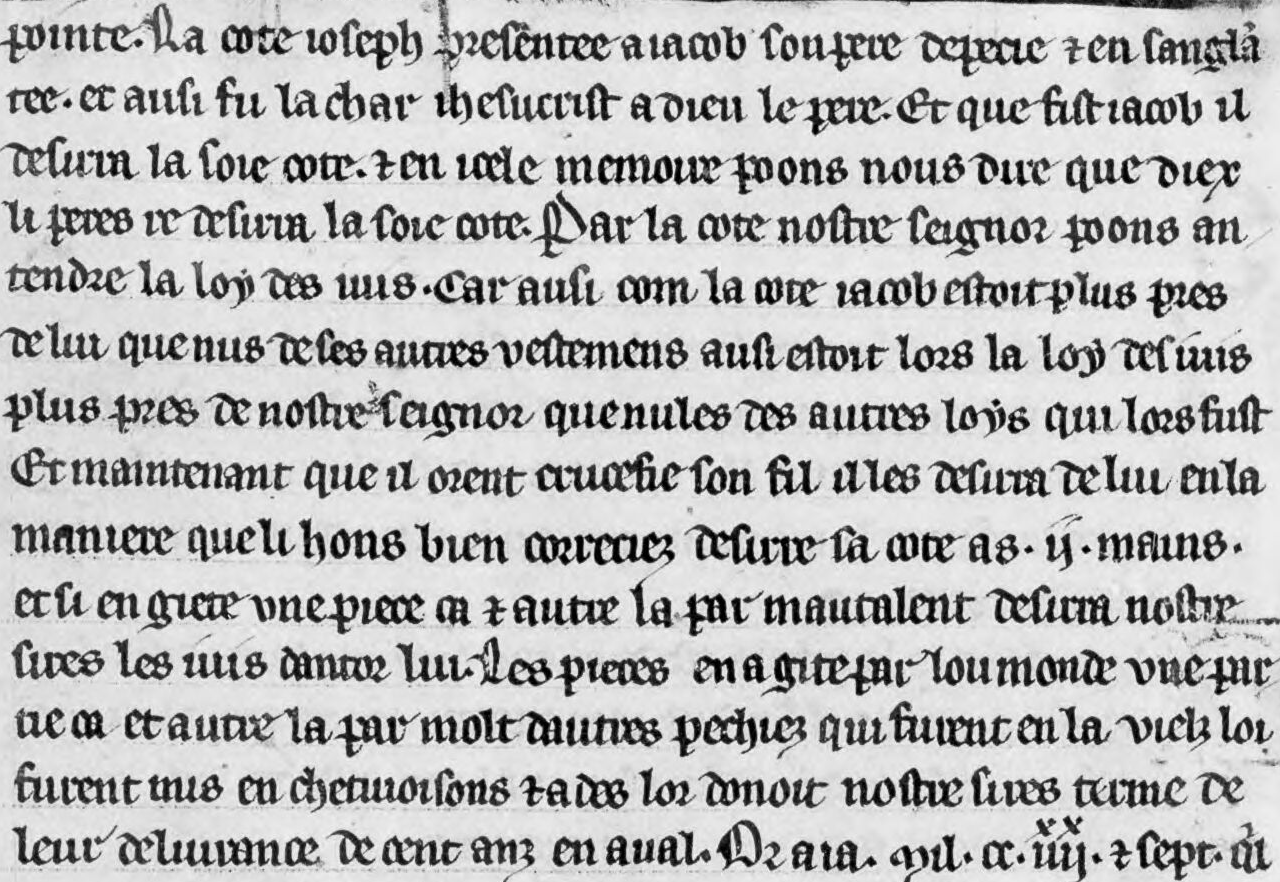 pointe. La cote ioseph presentee a iacob son pere depecie ⁊ en sanglā
tee. et ausi fu la char ihesucrist a dieu le pere. Et que fist iacob il
desirra la soie cote. ⁊ en icele memoire poons nous dire que diex
li peres re desirra la soie cote. Par la cote nostre seignor poons an
tendre la loy des iuis. Car ausi com la cote iacob estoit plus pres
de lui que nus de ses autres vestemens ausi estoit lors la loy des iuis
plus pres de nostre seignor que nules des autres loys qui lors fust
Et maintenant que il orent crucefie son fil il les desirra de lui en la
maniere que li hons bien correciez desirre sa cote as .ij. mains.
et si en giete vne piece ca ⁊ autre la par mautalent desirra nostre
sires les iuis dantor lui. Les pieces en a gite par lou monde vne par
tie ca et autre la par molt dautres pechiez qui furent en la vielz loi
furent mis en chetiuoisons ⁊ ades lor donoit nostre sires terme de
leur deliurance de cent anz en aual. Or a ia. mil. cc. iiij.xx ⁊ sept. q̄